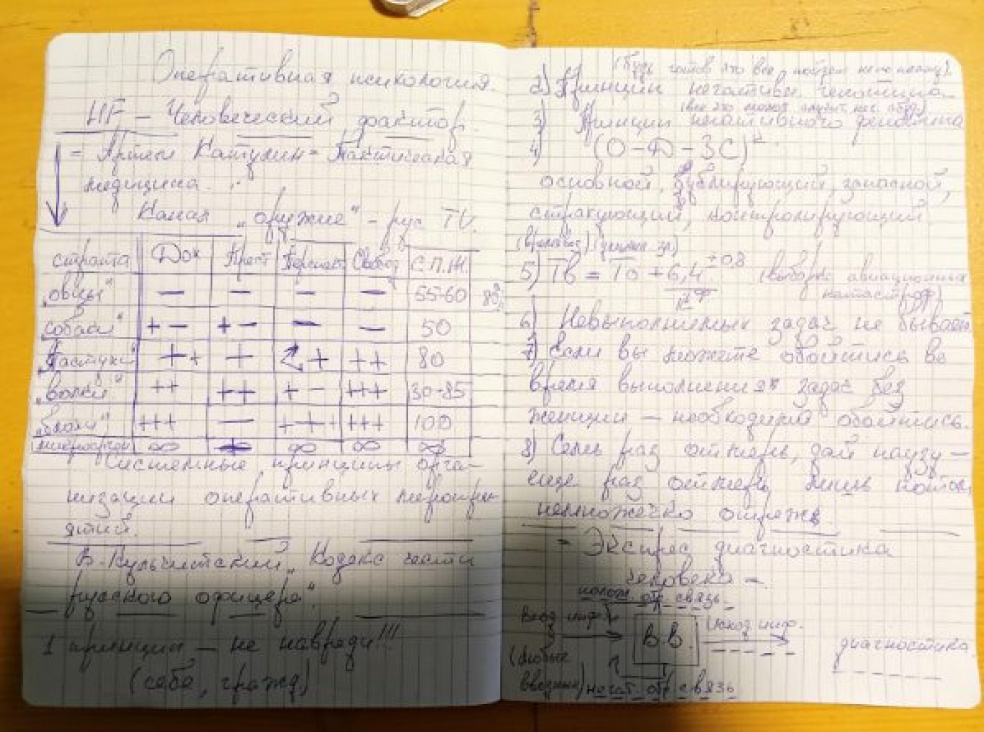 Оперативная психология.
HF – Человеческий фактор.
= Артем Катулин = Тактическая
медицина.
Канал „оружие" – рус TV.
страта Дох Прест Перспект Свобод С.П.Ж.
„овцы" — — — — 55-60 80%
„собаки" + – + – — — 50
„пастухи" ++ + + ++ 80
„волки" ++ ++ + – +++ 30-85
„блохи" +++ — +++ +++ 100
∞ + ∞ ∞ ∞
Системные принципы орга-
низации оперативных меропри-
ятий.
В. Кульчитский „Кодекс чести
русского офицера".
1 принцип – не навреди!!!
(себе, гражд)
(будь готов что все пойдет не по плану).
2) Принцип негативн.
3) Принцип негативного
4) (О – Д – ЗС)
основной, дублирующий, запасной,
страхующий, контролирующий
5) Тв = То + 6,4 +0,8 (выборка авиационных
катастроф)
6) Невыполнимых задач не бывает
7) Если вы можете обойтись во
время выполнения задач без
женщин – необходимо обойтись.
8) Семь раз отмерь, дай паузу –
еще раз отмерь, лишь потом
немножечко отрежь
= Экспрес диагностика
человека –
полож. обр. связь
Вход. инф. В.В. Исход. инф. диагностика
(любые
вводные) негат. обр. связь